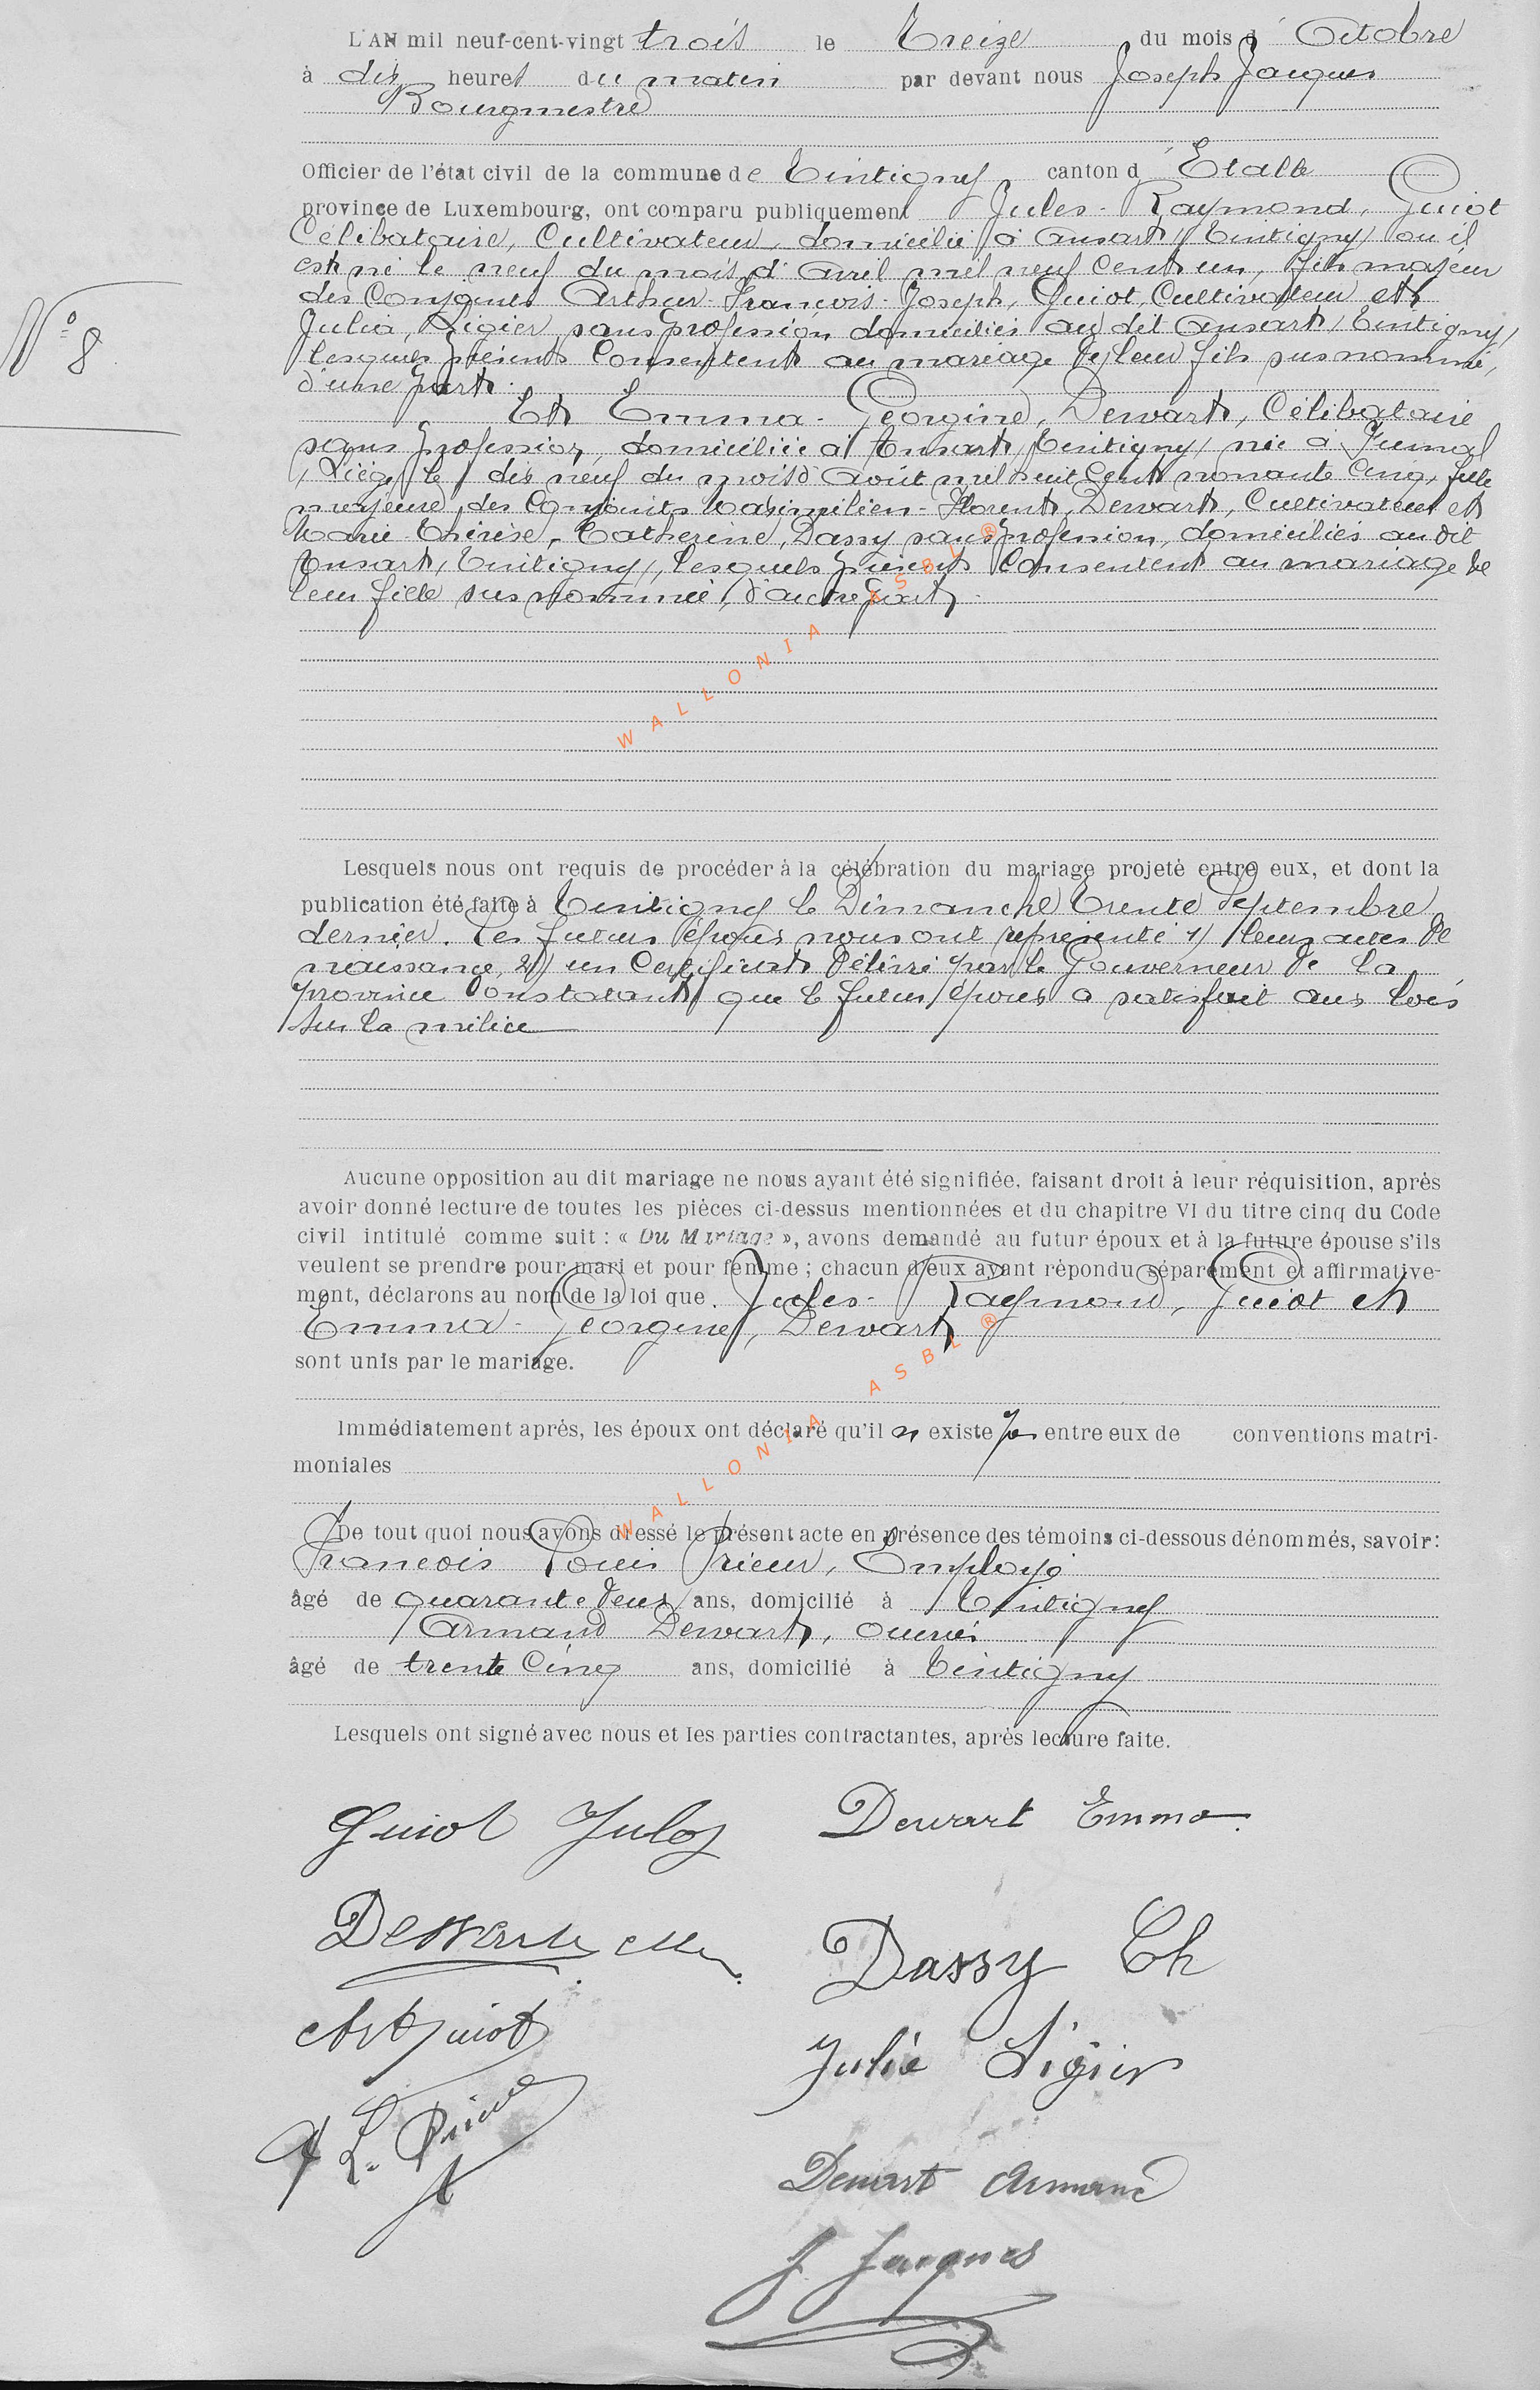 L'AN mil neuf-cent-vingt trois le Treize du mois d'Octobre
à dix heures du matin par devant nous Joseph Jacques
Bourgmestre
Officier de l'état civil de la commune de Tintigny canton d'Etalle
province de Luxembourg, ont comparu publiquement Jules-Raymond, Guiot
Célibataire, Cultivateur, domicilié à Ansart (Tintigny) ou il
est né le neuf du mois d'avril mil neuf Cent un, fils majeur
des Conjoints Arthur-François-Joseph, Guiot, Cultivateur et
Julia, Ligier sans profession domiciliés au dit Ansart (Tintigny)
lesquels présents Consentent au mariage de leur fils susnommé,
d'une part.
Et Emma-Georgine, Dewart, Célibataire
sans profession, domiciliée à Ansart (Tintigny) née à
(Liège) le dix neuf du mois d'août mil huit Cent nonante cinq, fille
majeure des Conjoints Maximilien-Florent, Dewart, Cultivateur et
Marie-Thérèse-Catherine, Dassy sans profession, domiciliés au dit
Ansart (Tintigny), lesquels présents Consentent au mariage de
leur fille susnommée, d'autre part.
WALLONIA ASBL ®
Lesquels nous ont requis de procéder à la célébration du mariage projeté entre eux, et dont la
publication été faite à Tintigny le Dimanche Trente Septembre
dernier. Les futurs époux nous ont représenté 1) leurs actes de
naissance, 2) un Certificat délivré par le Gouverneur de la
province Constatant que le futur époux a satisfait aux lois
sur la milice
Aucune opposition au dit mariage ne nous ayant été signifiée, faisant droit à leur réquisition, après
avoir donné lecture de toutes les pièces ci-dessus mentionnées et du chapitre VI du titre cinq du Code
civil intitulé comme suit : « Du Mariage », avons demandé au futur époux et à la future épouse s'ils
veulent se prendre pour mari et pour femme ; chacun d'eux ayant répondu séparément et affirmative-
ment, déclarons au nom de la loi que Jules-Raymond, Guiot et
Emma-Georgine, Dewart
sont unis par le mariage.
Immédiatement après, les époux ont déclaré qu'il n existe pas entre eux de conventions matri-
moniales
WALLONIA ASBL ®
De tout quoi nous avons dressé le présent acte en présence des témoins ci-dessous dénommés, savoir :
François Louis Prieur, Employé
âgé de quarante deux ans, domicilié à Tintigny
Armand Dewart, ouvrier
âgé de trente Cinq ans, domicilié à Tintigny
Lesquels ont signé avec nous et les parties contractantes, après lecture faite.
Guiot Jules Dewart Emma
Dewart Dassy Th
Art Guiot
Julie Ligier
L. Prieur
Dewart Armand
J Jacques
N° 8